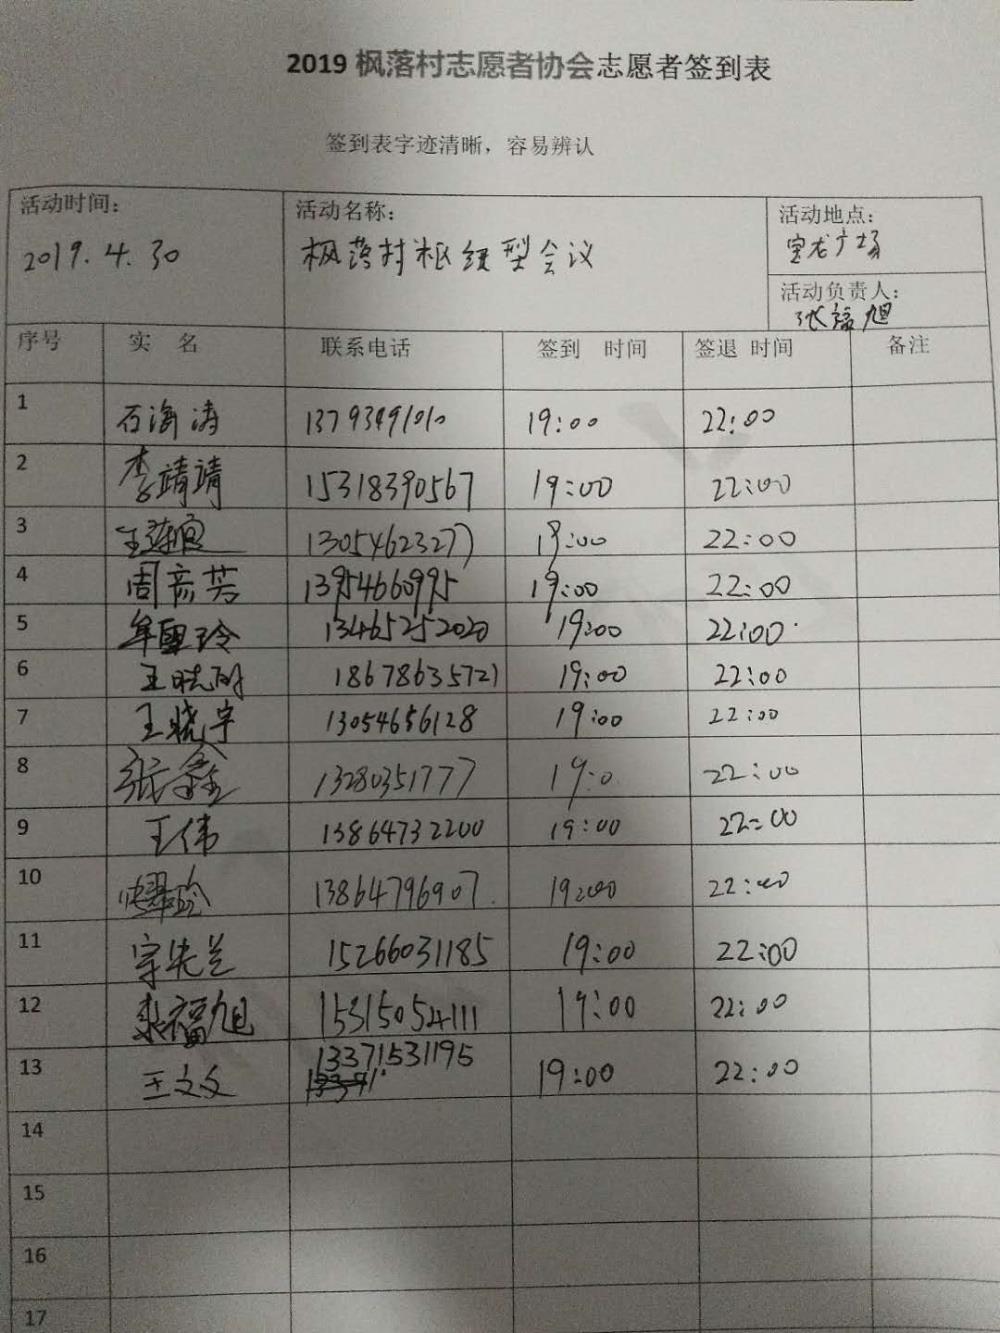 2019 枫落村志愿者协会志愿者签到表
签到表字迹清晰，容易辨认
活动时间： 活动名称： 活动地点：
2019.4.30 枫落村枢纽型会议 宝龙广场
活动负责人：
张福旭
序号 实 名 联系电话 签到 时间 签退 时间 备注
1 石海涛 13793491010 19:00 22:00
2 李靖靖 15318390567 19:00 22:00
3 13054623277 19:00 22:00
4 周彦芳 13954660995 19:00 22:00
5 牟雪玲 13465252020 19:00 22:00
6 王晓 18678635721 19:00 22:00
7 王晓宇 13054656128 19:00 22:00
8 张鑫 13280351777 19:0 22:00
9 王伟 13864732200 19:00 22:00
10 13864796907. 19:00 22:00
11 宋先兰 15266031185 19:00 22:00
12 张福旭 15315054111 19:00 22:00
13 王文文 13371531195 19:00 22:00
14
15
16
17